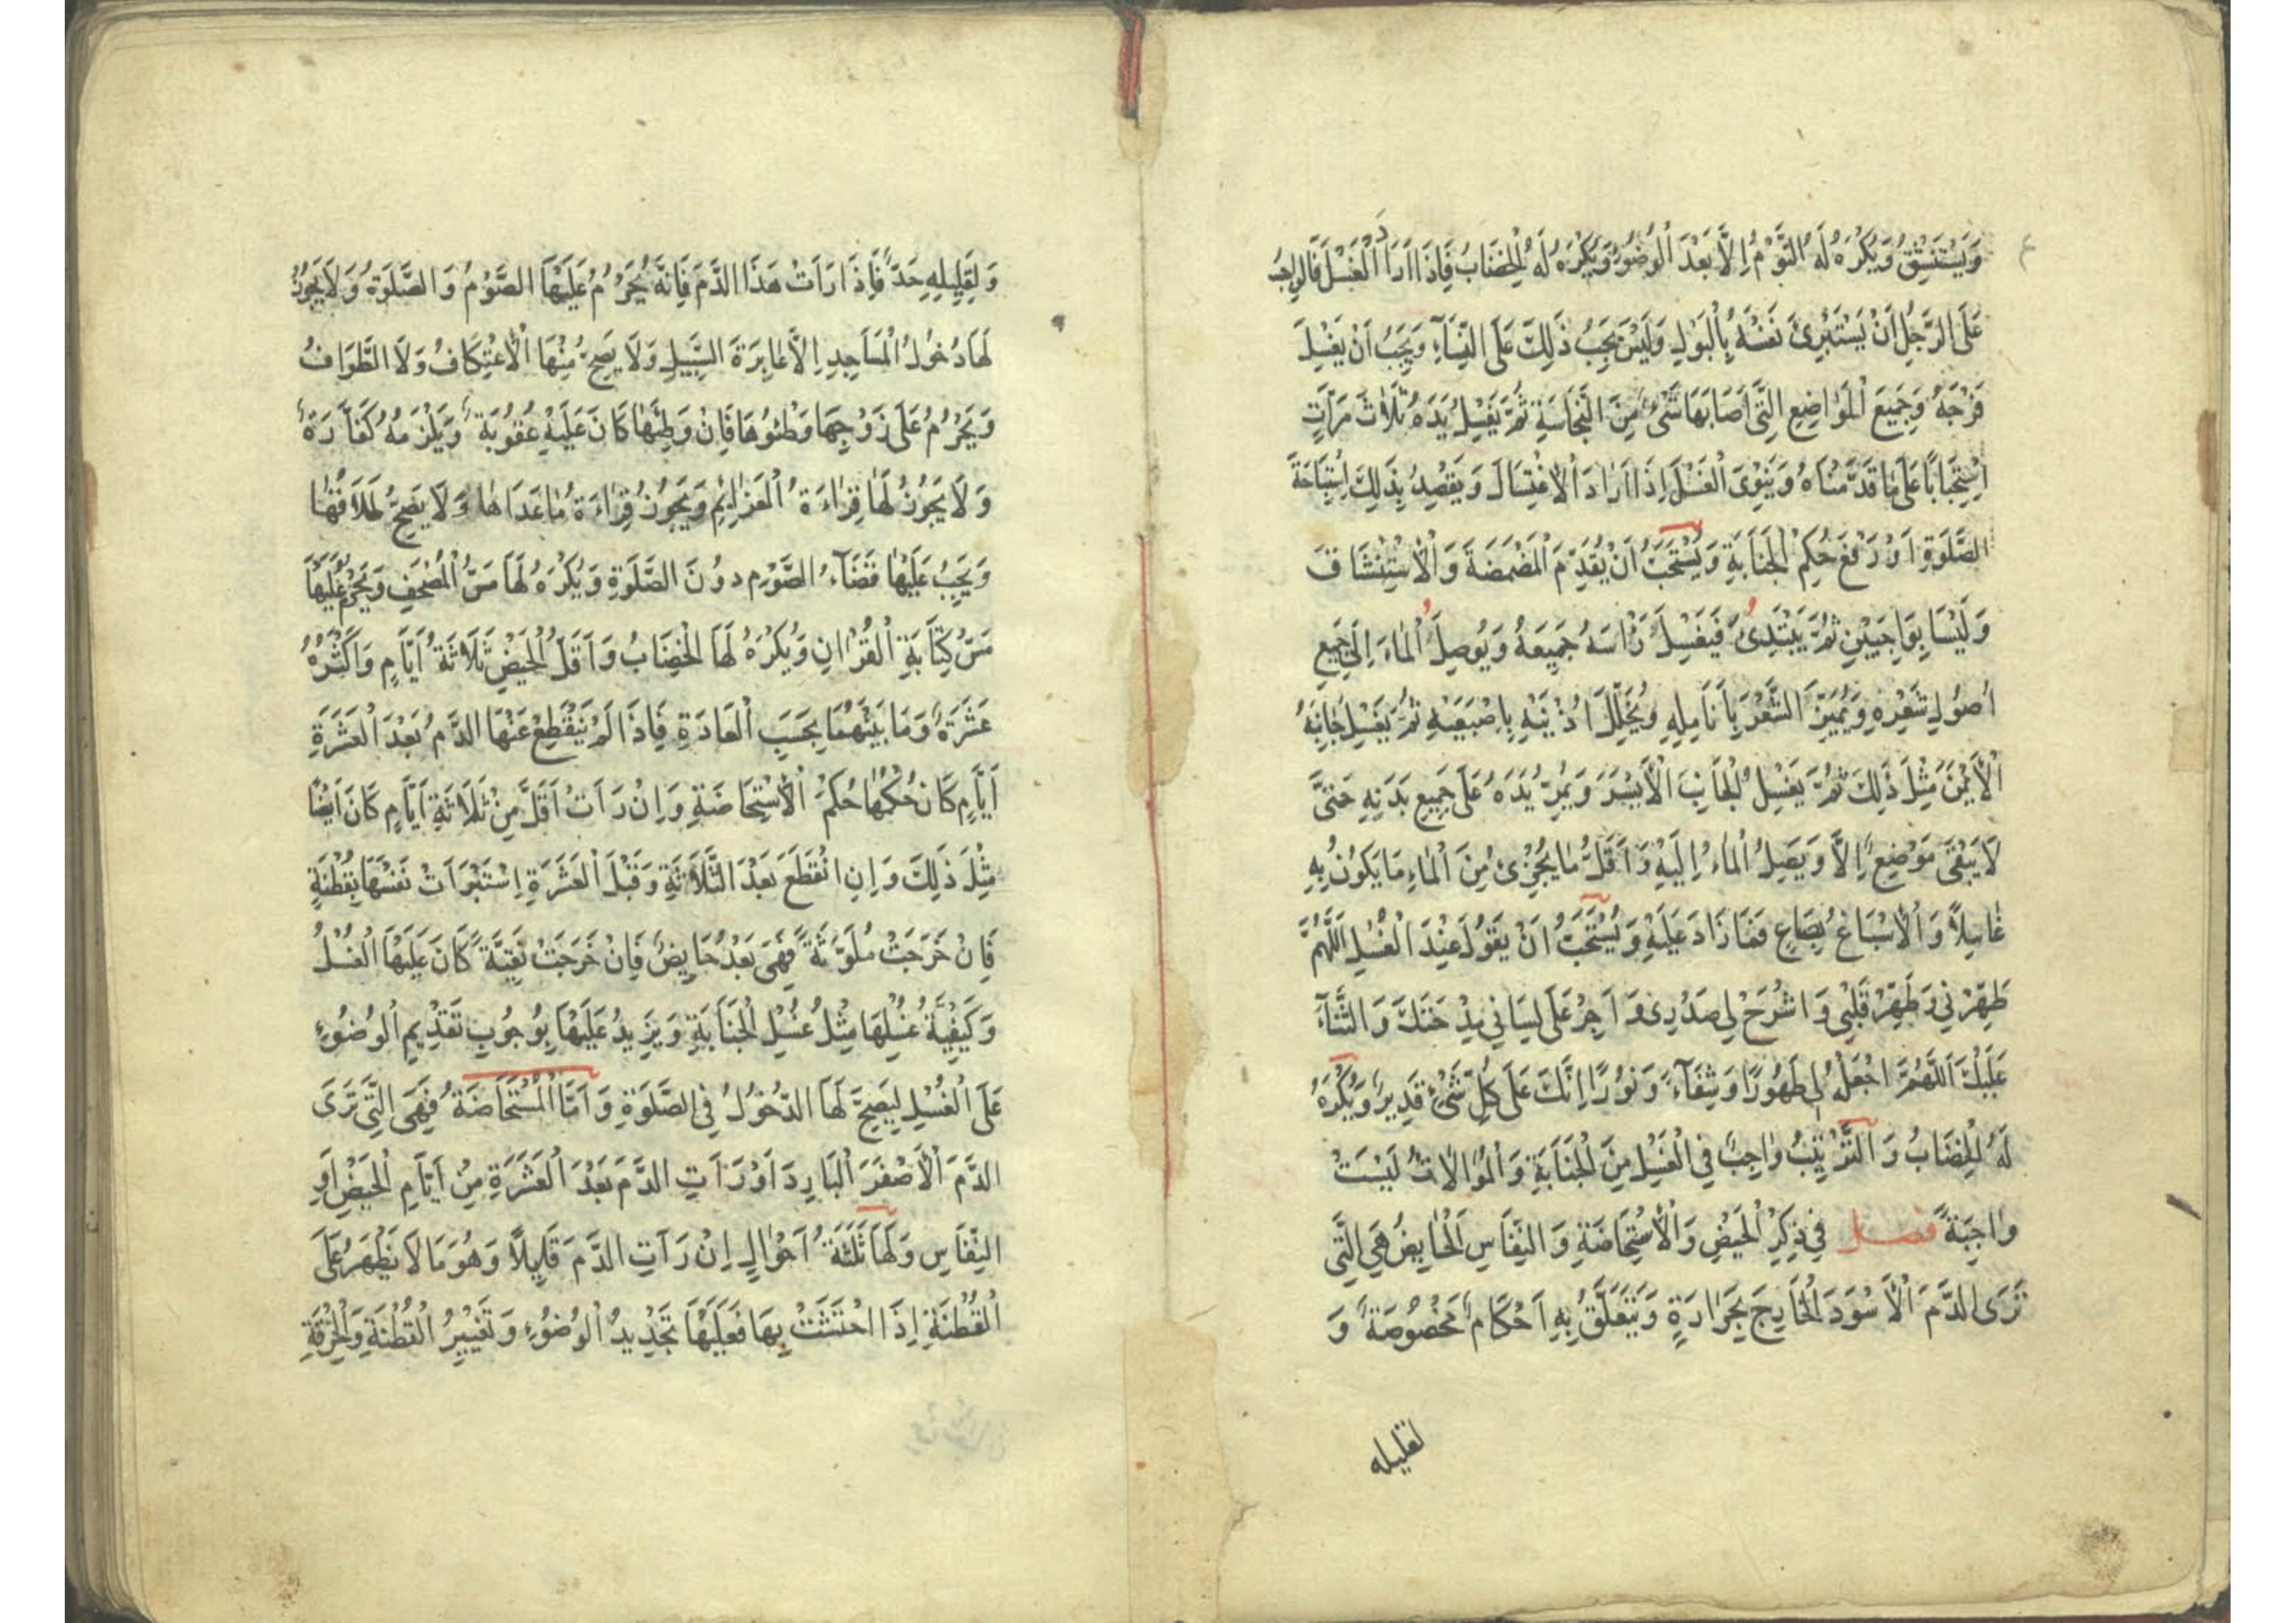 وَيَسْتَنْشِقُ وَيُكْرَهُ لَهُ النَّوْمُ اِلَّا بَعْدَ الْوُضُوءِ وَيُكْرَهُ لَهُ الْخِضَابُ فَاِذَا اَرَادَ الْغُسْلَ فَالوَاجِبُ
عَلَى الرَّجُلِ اَنْ يَسْتَبْرِئَ نَفْسَهُ بِالْبَوْلِ وَلَيْسَ يَجِبُ ذَلِكَ عَلَى النِّسَآءِ وَيَجِبُ اَنْ يَغْسِلَ
فَرْجَهُ وَجَمِيعَ الْمَوَاضِعِ الَّتِى اَصَابَهَا شَىْءٌ مِنَ النَّجَاسَةِ ثُمَّ يَغْسِلُ يَدَهُ ثَلَاثَ مَرَّاتٍ
اِسْتِحْبَابًا عَلَى مَا قَدَّمْنَاهُ وَيَنْوِى الْغُسْلَ اِذَا اَرَادَ الْاِغْتِسَالَ وَيَقْصِدُ بِذَلِكَ اِسْتِبَاحَةَ
الصَّلَوةِ اَوْ رَفْعَ حُكْمِ الْجَنَابَةِ وَيُسْتَحَبُّ اَنْ يُقَدِّمَ الْمَضْمَضَةَ وَالْاِسْتِنْشَاقَ
وَلَيْسَا بِوَاجِبَيْنِ ثُمَّ يَبْتَدِئُ فَيَغْسِلُ رَاْسَهُ جَمِيعَهُ وَيُوصِلُ الْمَاءَ اِلَى جَمِيعِ
اُصُولِ شَعْرِهِ وَيُمَيِّزُ الشَّعْرَ بِاَنَامِلِهِ وَيُخَلِّلُ اُذُنَيْهِ بِاِصْبَعَيْهِ ثُمَّ يَغْسِلُ جَانِبَهُ
الْاَيْمَنَ مِثْلَ ذَلِكَ ثُمَّ يَغْسِلُ الْجَانِبَ الْاَيْسَرَ وَيُمِرُّ يَدَهُ عَلَى جَمِيعِ بَدَنِهِ حَتَّى
لَا يَبْقَى مَوْضِعٌ اِلَّا وَيَصِلُ الْمَاءُ اِلَيْهِ وَاَقَلُّ مَا يُجْزِئُ مِنَ الْمَاءِ مَا يَكُونُ بِهِ
غَاسِلًا وَالْاِسْبَاغُ بِصَاعٍ فَمَا زَادَ عَلَيْهِ وَيُسْتَحَبُّ اَنْ يَقُولَ عِنْدَ الْغُسْلِ اَللَّهُمَّ
طَهِّرْنِى وَطَهِّرْ قَلْبِى وَاشْرَحْ لِى صَدْرِى وَاَجْرِ عَلَى لِسَانِى مِدْحَتَكَ وَالثَّنَآءَ
عَلَيْكَ اَللَّهُمَّ اجْعَلْهُ لِى طَهُورًا وَشِفَآءً وَنُورًا اِنَّكَ عَلَى كُلِّ شَىْءٍ قَدِيرٌ وَيُكْرَهُ
لَهُ الْخِضَابُ وَالتَّرْتِيبُ وَاجِبٌ فِى الْغُسْلِ مِنَ الْجَنَابَةِ وَالْمُوَالَاتُ لَيْسَتْ
وَاجِبَةً فصل فِى ذِكْرِ الْحَيْضِ وَالْاِسْتِحَاضَةِ وَالنِّفَاسِ اَلْحَايِضُ هِىَ الَّتِى
تَرَى الدَّمَ الْاَسْوَدَ الْخَارِجَ بِحَرَارَةٍ وَيَتَعَلَّقُ بِهِ اَحْكَامٌ مَخْصُوصَةٌ وَ
لقليله
وَلِقَلِيلِهِ حَدٌّ فَاِذَا رَاَتْ هَذَا الدَّمَ فَاِنَّهُ يَحْرُمُ عَلَيْهَا الصَّوْمُ وَالصَّلَوةُ وَلَا يَجُوزُ
لَهَا دُخُولُ الْمَسَاجِدِ اِلَّا عَابِرَةَ السَّبِيلِ وَلَا يَصِحُّ مِنْهَا الْاِعْتِكَافُ وَلَا الطَّوَافُ
وَيَحْرُمُ عَلَى زَوْجِهَا وَطْئُوهَا فَاِنْ وَطِئَهَا كَانَ عَلَيْهِ عُقُوبَةٌ وَيَلْزَمُهُ كَفَّارَةٌ
وَلَا يَجُوزُ لَهَا قِرَاءَةُ الْعَزَايِمِ وَيَجُوزُ قِرَاءَةُ مَا عَدَاهَا وَلَا يَصِحُّ طَلَاقُهَا
وَيَجِبُ عَلَيْهَا قَضَآءُ الصَّوْمِ دُونَ الصَّلَوةِ وَيُكْرَهُ لَهَا مَسُّ الْمُصْحَفِ وَيَحْرُمُ عَلَيْهَا
مَسُّ كِتَابَةِ الْقُرْاٰنِ وَيُكْرَهُ لَهَا الْخِضَابُ وَاَقَلُّ الْحَيْضِ ثَلَاثَةُ اَيَّامٍ وَاَكْثَرُهُ
عَشَرَةٌ وَمَا بَيْنَهُمَا بِحَسَبِ الْعَادَةِ فَاِذَا لَمْ يَنْقَطِعْ عَنْهَا الدَّمُ بَعْدَ الْعَشَرَةِ
اَيَّامٍ كَانَ حُكْمُهَا حُكْمُ الْاِسْتِحَاضَةِ وَاِنْ رَاَتْ اَقَلَّ مِنْ ثَلَاثَةِ اَيَّامٍ كَانَ اَيْضًا
مِثْلَ ذَلِكَ وَاِنِ انْقَطَعَ بَعْدَ الثَّلَاثَةِ وَقَبْلَ الْعَشَرَةِ اِسْتَبْرَاَتْ نَفْسَهَا بِقُطْنَةٍ
فَاِنْ خَرَجَتْ مُلَوَّثَةً فَهِىَ بَعْدُ حَايِضٌ فَاِنْ خَرَجَتْ نَقِيَّةً كَانَ عَلَيْهَا الْغُسْلُ
وَكَيْفِيَّةُ غُسْلِهَا مِثْلُ غُسْلِ الْجَنَابَةِ وَيَزِيدُ عَلَيْهَا بِوُجُوبِ تَقْدِيمِ الْوُضُوءِ
عَلَى الْغُسْلِ لِيَصِحَّ لَهَا الدُّخُولُ فِى الصَّلَوةِ وَاَمَّا الْمُسْتَحَاضَةُ فَهِىَ الَّتِى تَرَى
الدَّمَ الْاَصْفَرَ الْبَارِدَ اَوْ رَاَتِ الدَّمَ بَعْدَ الْعَشَرَةِ مِنْ اَيَّامِ الْحَيْضِ اَوِ
النِّفَاسِ وَلَهَا ثَلَثَةُ اَحْوَالٍ اِنْ رَاَتِ الدَّمَ قَلِيلًا وَهُوَ مَا لَا يَظْهَرُ عَلَى
الْقُطْنَةِ اِذَا احْتَشَتْ بِهَا فَعَلَيْهَا تَجْدِيدُ الْوُضُوءِ وَتَغْيِيرُ الْقُطْنَةِ وَالْخِرْقَةِ